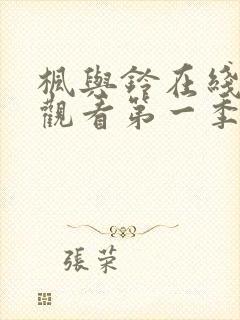 楓與鈴在綫
觀看第一季
張荣